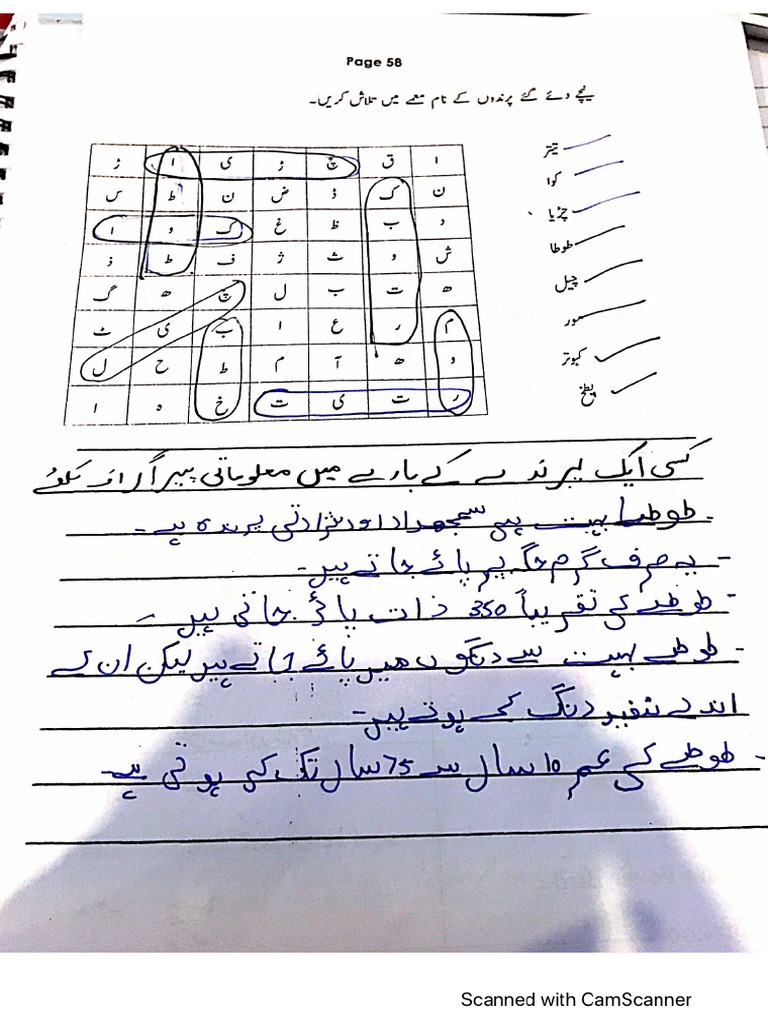 Page 58
نیچے دیے گئے پرندوں کے نام معمے میں تلاش کریں۔
ا ق چ ڑ ی ا ڑ
ن ک ڈ ض ن ط س
د ب ظ غ ک و ا
ش و ث ژ ف ط ذ
ھ ت ب ل چ ھ گ
م ر ع ا ب ی ٹ
و ھ آ م ط ح ل
ر ت ی ت خ ہ ا
تیتر
کوا
چڑیا
طوطا
چیل
مور
کبوتر
بطخ
کسی ایک پرندے کے بارے میں معلوماتی پیراگراف
- طوطا بہت ہی سمجھدار اور پرندہ ہے۔
- یہ صرف گرم جگہ پر پائے جاتے ہیں۔
- طوطے کی تقریباً 350 ذات پائی جاتی ہیں۔
- طوطے بہت سے رنگوں میں پائے جاتے ہیں لیکن ان کے
انڈے سفید رنگ کے ہوتے ہیں۔
- طوطے کی عمر 10 سال سے 75 سال تک کی ہوتی ہے۔
Scanned with CamScanner